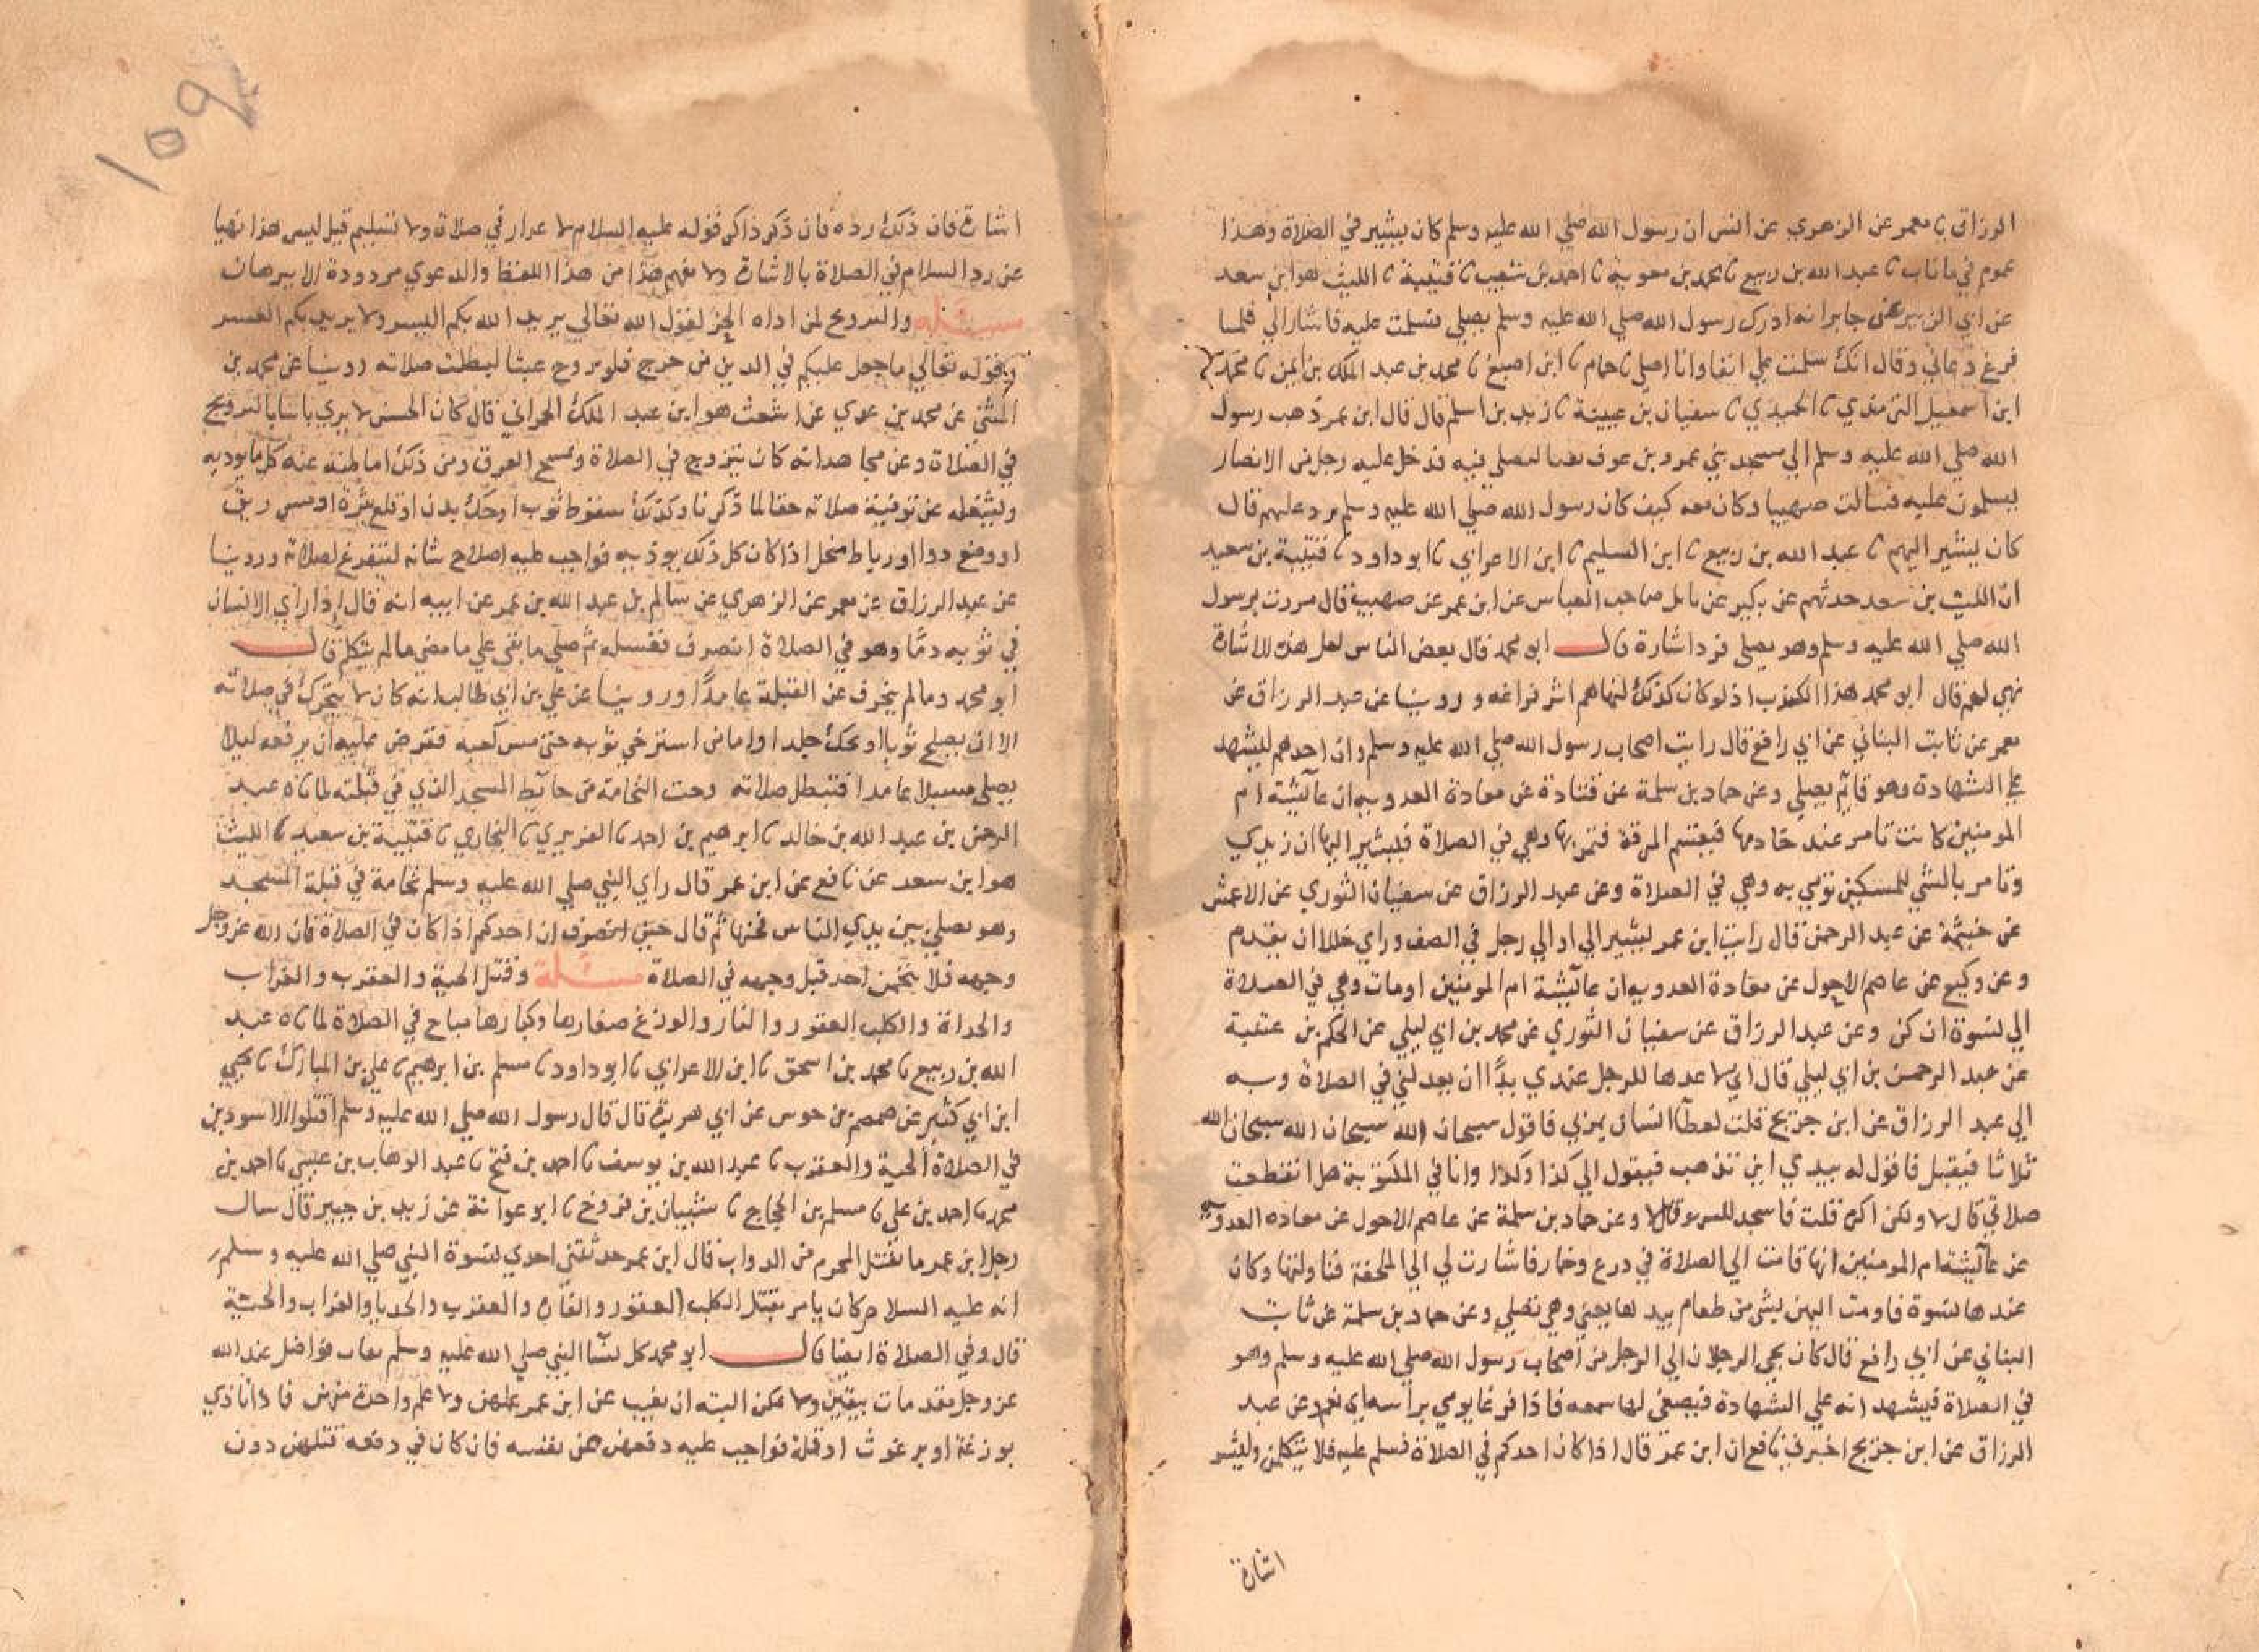 الرزاق نا معمر عن الزهري عن انس ان رسول الله صلي الله عليه وسلم كان يشير في الصلاة وهذا
عموم في ما ناب نا عبد الله بن ربيع نا محمد بن معوية نا احمد بن شعيب نا قتيبة نا الليث هو ابن سعد
عن ابي الزبير عن جابر انه ادرك رسول الله صلي الله عليه وسلم يصلي فسلمت عليه فاشار الي فلما
فرغ دعاني وقال انك سلمت علي انفا وانا اصلي نا حمام نا ابن اصبغ نا محمد بن عبد الملك بن ايمن نا محمد
ابن اسمعيل الترمذي نا الحميدي نا سفيان بن عيينة نا زيد بن اسلم قال قال ابن عمر ذهب رسول
الله صلي الله عليه وسلم الي مسجد بني عمرو بن عوف بقبا ليصلي فيه فدخل عليه رجل من الانصار
يسلمون عليه فسالت صهيبا وكان معه كيف كان رسول الله صلي الله عليه وسلم يرد عليهم قال
كان يشير اليهم نا عبد الله بن ربيع نا ابن السليم نا ابن الاعرابي نا ابو داود نا قتيبة بن سعيد
ان الليث بن سعد حدثهم عن بكير عن نابل صاحب العباس عن ابن عمر عن صهيب قال مررت برسول
الله صلي الله عليه وسلم وهو يصلي فرد اشارة قال ابو محمد فقال بعض الناس لعل هذه الاشارة
نهي لهم قال ابو محمد هذا الكذب اذ لو كان كذلك لنهاهم اثر فراغه وروينا عن عبد الرزاق عن
معمر عن ثابت البناني عن ابي رافع قال رايت اصحاب رسول الله صلي الله عليه وسلم وان احدهم ليشهد
علي الشهادة وهو قائم يصلي وعن حماد بن سلمة عن قتادة عن معاذة العدوية ان عآئشة ام
المومنين كانت تامر عند خادمها فيقسم المرقة فتمر بها وهي في الصلاة فيشير اليها ان زيدي
وتامر بالشي للمسكين تومي به وهي في الصلاة وعن عبد الرزاق عن سفيان الثوري عن الاعمش
عن خيثمة عن عبد الرحمن قال رايت ابن عمر يشير الي اوالي رجل في الصف وراي خللا ان يقدم
وعن وكيع عن عاصم الاحول عن معاذة العدوية ان عآئشة ام المومنين اومات وهي في الصلاة
الي نسوة ان كن وعن عبد الرزاق عن سفيان الثوري عن محمد بن ابي ليلي عن الحكم بن عتيبة
عن عبد الرحمن بن ابي ليلي قال اني لا عدها للرجل عندي يدا ان يعدلني في الصلاة وبه
الي عبد الرزاق عن ابن جريج قلت لعطآ انسان يمر بي فاقول سبحان الله سبحان الله سبحان الله
ثلاثا فيقبل فاقول له بيدي اين تذهب فيقول الي كذا وكذا وانا في المكتوبة هل انقطعت
صلاتي قال لا ولكن اكره قلت فاسجد للسهو قال لا وعن حماد بن سلمة عن عاصم الاحول عن معاذه العدوية
عن عآئشة ام المومنين انها قامت الي الصلاة في درع وخمار فاشارت لي الي الملحفة فناولتها وكان
عندها نسوة فاومت اليهن بشي من طعام بيدها يعني وهي تصلي وعن حماد بن سلمة عن ثابت
البناني عن ابي رافع قال كان يجي الرجلان الي الرجل من اصحاب رسول الله صلي الله عليه وسلم وهو
في الصلاة فيشهد انه علي الشهادة فيصغي لها سمعه فاذا فرغا يومي براسه اي نعم وعن عبد
الرزاق عن ابن جريج اخبرني نافع ان ابن عمر قال اذا كان احدكم في الصلاة فسلم عليه فلا يتكلمن وليشر
اشارة
اشارة فان ذلك رده فان ذكر ذاكر قوله عليه السلام لا غرار في صلاة ولا تسليم قيل ليس هذا نهيا
عن رد السلام في الصلاة بالاشارة ولا يفهم هذا من هذا اللفظ والدعوي مردودة الا ببرهان
مسئله والتروح لمن اذاه الحر لقول الله تعالي يريد الله بكم اليسر ولا يريد بكم العسر
وبقوله تعالي ما جعل عليكم في الدين من حرج فلو تروح عبثا لبطلت صلاته روينا عن محمد بن
المثني عن محمد بن عدي عن اشعث هو ابن عبد الملك الحمراني قال كان الحسن لا يري باسا بالترويح
في الصلاة وعن مجاهد انه كان يتروح في الصلاة ويمسح العرق ومن ذلك اماطته عنه كل ما يوذيه
ويشغله عن توفية صلاته حقها لما ذكرنا وكذلك سقوط ثوب او حك بدن او قلع بثرة او مس ريق
او وضع دوا او رباط منحل اذا كان كل ذلك يوذيه فواجب عليه اصلاح شانه ليتفرغ لصلاته وروينا
عن عبد الرزاق عن معمر عن الزهري عن سالم بن عبد الله بن عمر عن ابيه انه قال اذا راي الانسان
في ثوبه دما وهو في الصلاة انصرف فغسله ثم صلي ما بقي علي ما مضي ما لم يتكلم قال
ابو محمد وما لم ينحرف عن القبلة عامدا وروينا عن علي بن ابي طالب انه كان لا يتحرك في صلاته
الا ان يصلح ثوبا او يحك جلدا واما من استرخي ثوبه حتي مس كعبه ففرض عليه ان يرفعه ليلا
يصلي مسبلا عامدا فتبطل صلاته وحت النخامة من حآئط المسجد الذي في قبلته لما ناه عبد
الرحمن بن عبد الله بن خالد نا ابرهيم بن احمد نا الفربري نا البخاري نا قتيبة بن سعيد نا الليث
هو ابن سعد عن نافع عن ابن عمر قال راي النبي صلي الله عليه وسلم نخامة في قبلة المسجد
وهو يصلي بين يدي الناس فحتها ثم قال حين انصرف ان احدكم اذا كان في الصلاة فان الله عز وجل
وجهه فلا يتنخمن احد قبل وجهه في الصلاة مسئلة وقتل الحية والعقرب والغراب
والحداة والكلب العقور والفار والوزغ صغارها وكبارها مباح في الصلاة لما ناه عبد
الله بن ربيع نا محمد بن اسحق نا ابن الاعرابي نا ابو داود نا مسلم بن ابرهيم نا علي بن المبارك نا يحيي
ابن ابي كثير عن ضمضم بن جوس عن ابي هريرة قال قال رسول الله صلي الله عليه وسلم اقتلوا الاسودين
في الصلاة الحية والعقرب نا عبد الله بن يوسف نا احمد بن فتح نا عبد الوهاب بن عيسي نا احمد بن
محمد نا احمد بن علي نا مسلم بن الحجاج نا شيبان بن فروخ نا ابو عوانة عن زيد بن جبير قال سال
رجل ابن عمر ما يقتل المحرم من الدواب قال ابن عمر حدثتني احدي نسوة النبي صلي الله عليه وسلم
انه عليه السلام كان يامر بقتل الكلب العقور والفاره والعقرب والحديا والغراب والحية
قال وفي الصلاة ايضا قال ابو محمد كل نسآ النبي صلي الله عليه وسلم فواضل عند الله
عز وجل مقدمات بيقين ولا يمكن البته ان يغيب عن ابن عمر علمهن ولا علم واحدة منهن فاذا تاذي
بوزغة او برغوث او قملة فواجب عليه دفعهن عن نفسه فان كان في دفعه قتلهن دون